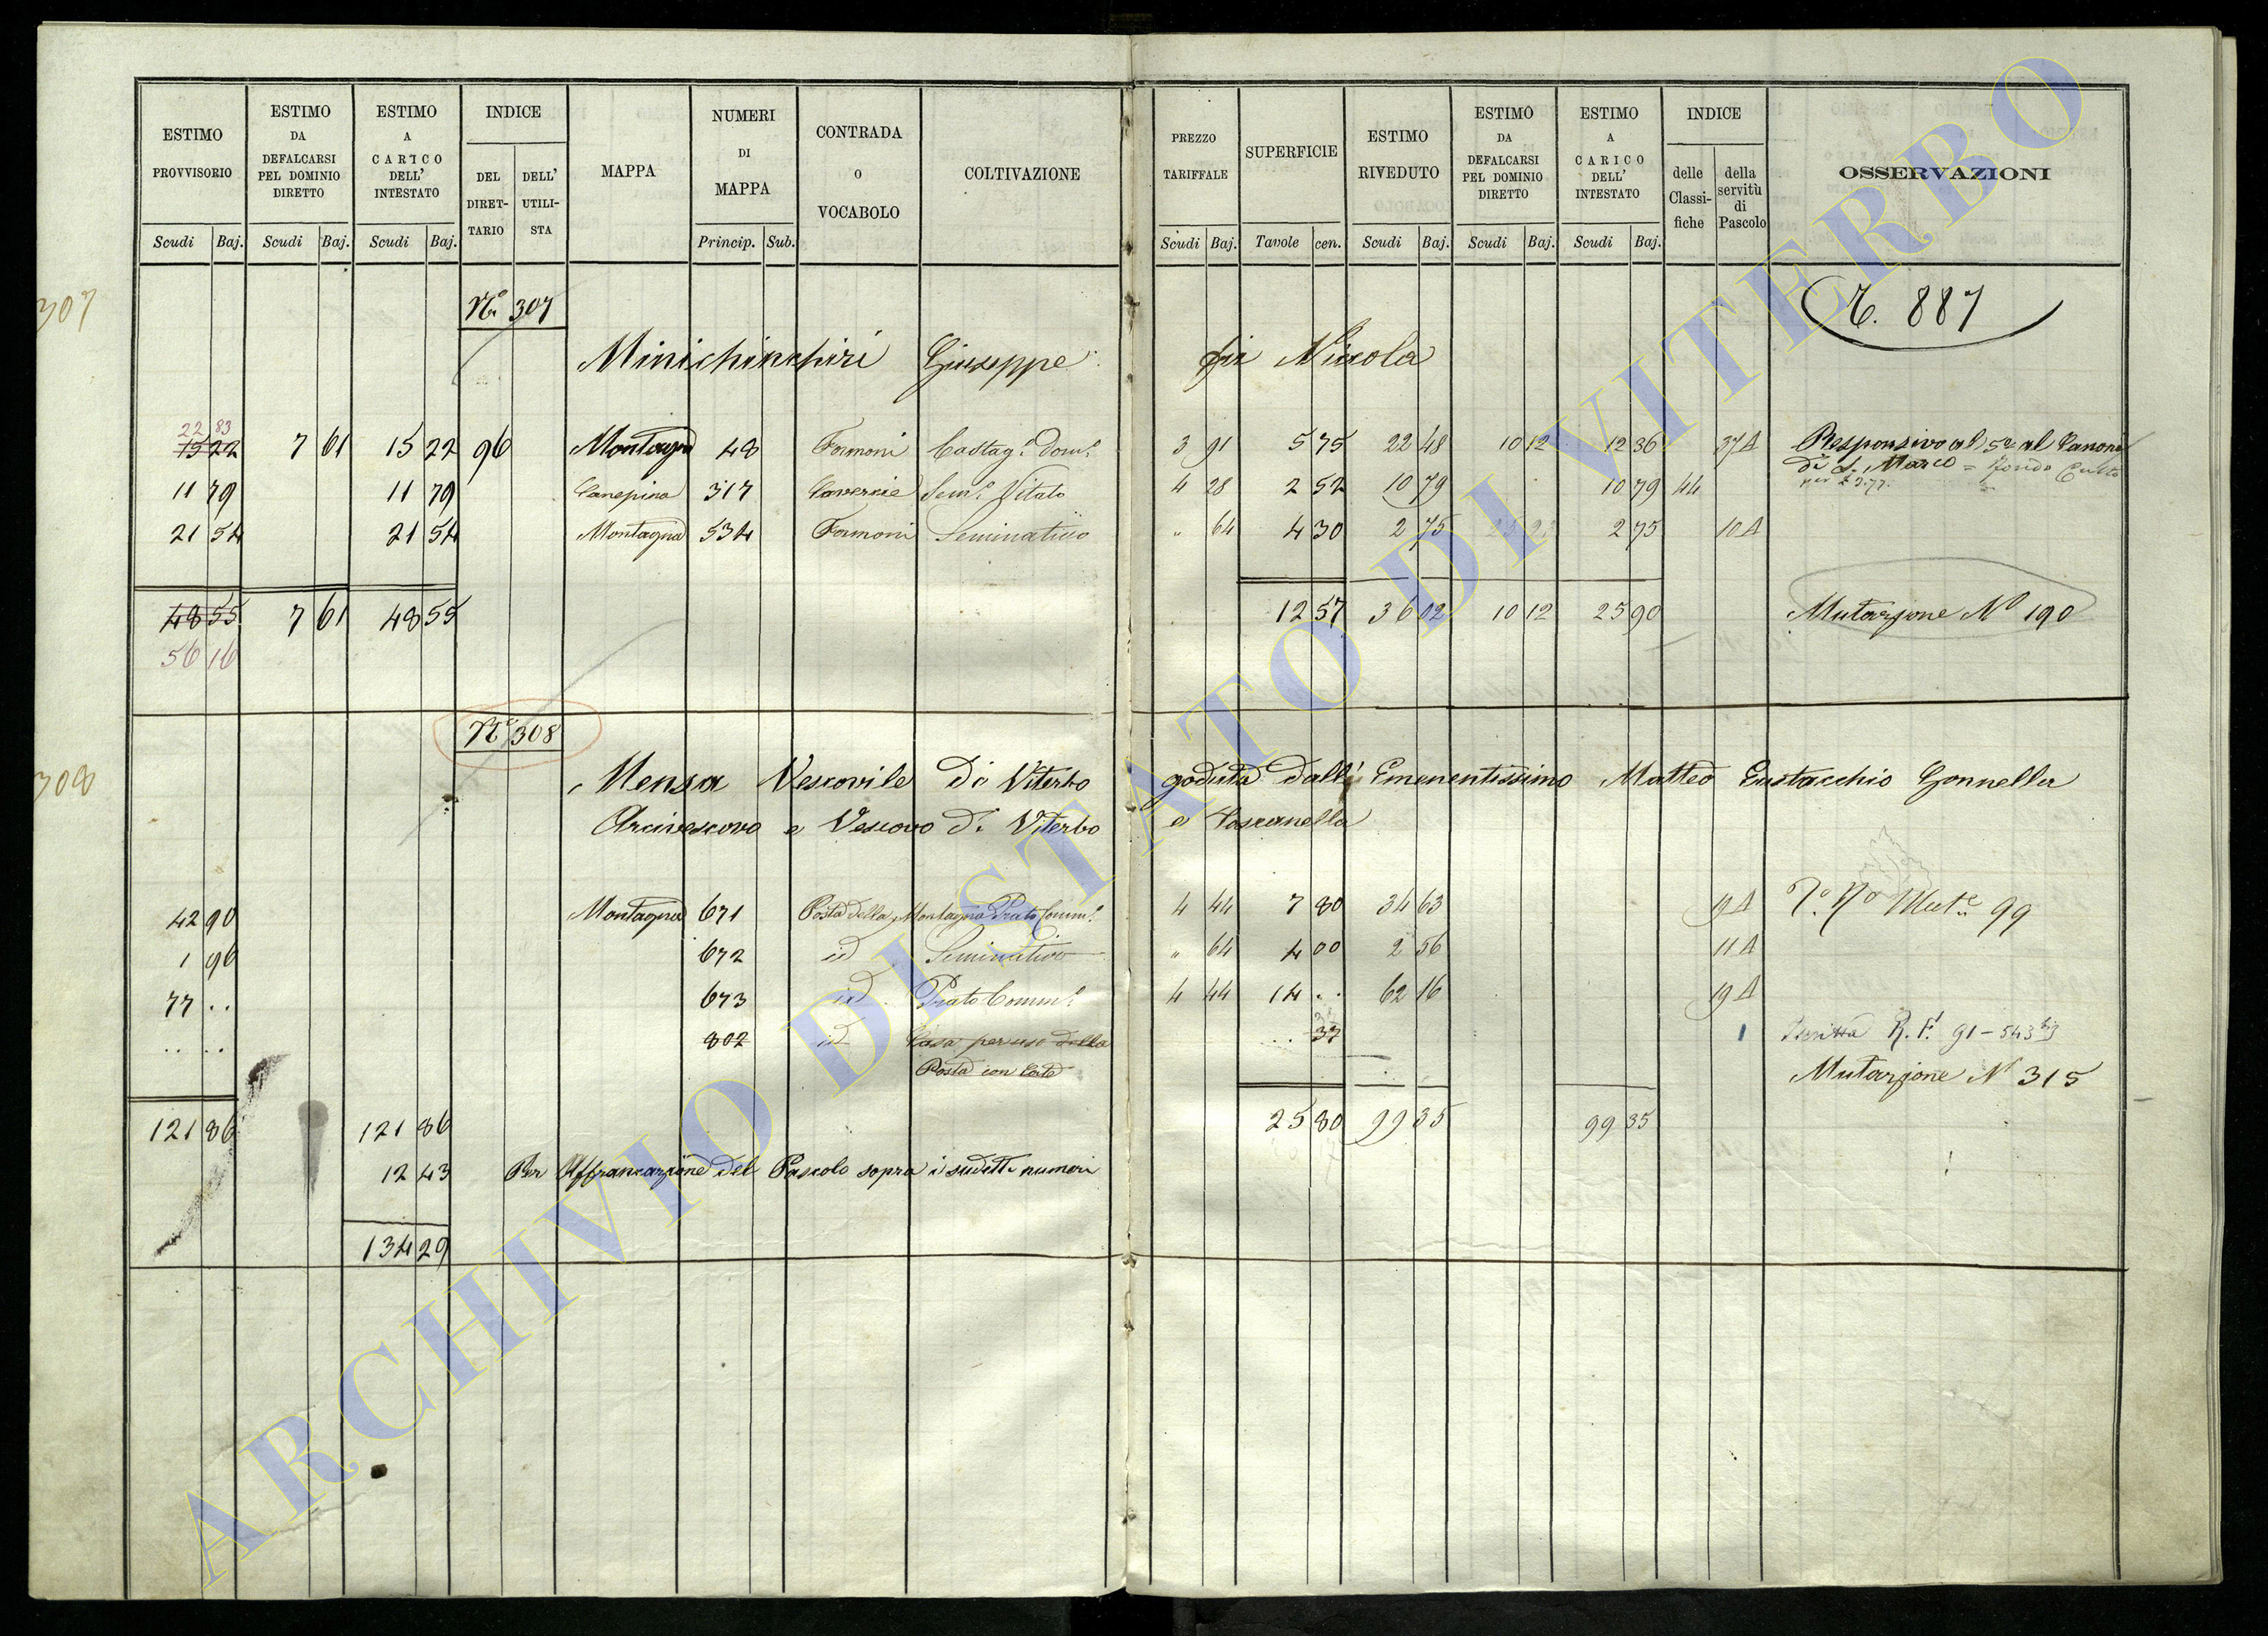 ESTIMO PROVVISORIO Scudi Baj.
ESTIMO DA DEFALCARSI PEL DOMINIO DIRETTO Scudi Baj.
ESTIMO A CARICO DELL' INTESTATO Scudi Baj.
INDICE DEL DIRET- TARIO DELL' UTILI- STA
MAPPA
NUMERI DI MAPPA Princip. Sub.
CONTRADA O VOCABOLO
COLTIVAZIONE
PREZZO TARIFFALE Scudi Baj.
SUPERFICIE Tavole cen.
ESTIMO RIVEDUTO Scudi Baj.
ESTIMO DA DEFALCARSI PEL DOMINIO DIRETTO Scudi Baj.
ESTIMO A CARICO DELL' INTESTATO Scudi Baj.
INDICE delle Classi- fiche della servitù di Pascolo
OSSERVAZIONI
307
N.º 307
887
Giuseppe fu Nicola
22 83
15 22 7 61 15 22 96 Montagna 48 Castag.º dom.º 3 91 5 75 22 48 10 12 12 36 37A Responsivo al 5º al Canone
di S. Marco = Fondo Culto
11 79 11 79 Canepina 317 Sem.º Vitato 4 28 2 52 10 79 10 79 44
21 54 21 54 Montagna 534 Seminativo " 64 4 30 2 75 2 75 10A
48 55 7 61 48 55 12 57 36 02 10 12 25 90 Mutazione Nº 190
56 16
308
Nº 308
Mensa Vescovile di Viterbo goduta dall' Eminentissimo Matteo Eustacchio Gonnella
Arcivescovo e Vescovo di Viterbo e Toscanella
42 90 Montagna 671 Posta della Montagna Prato Comm.º 4 44 7 80 34 63 19A Mut.e 99
1 96 672 id Seminativo " 64 4 00 2 56 11A
77 .. 673 id Prato Comm.º 4 44 14 .. 62 16 19A
.. .. 802 id Casa per uso della 37 1 Scritta R.F. 91 - 543
Posta con Corte Mutazione Nº 315
121 86 121 86 25 80 99 35 99 35
12 43 Per Affrancazione del Pascolo sopra i sudetti numeri
134 29
ARCHIVIO DI STATO DI VITERBO